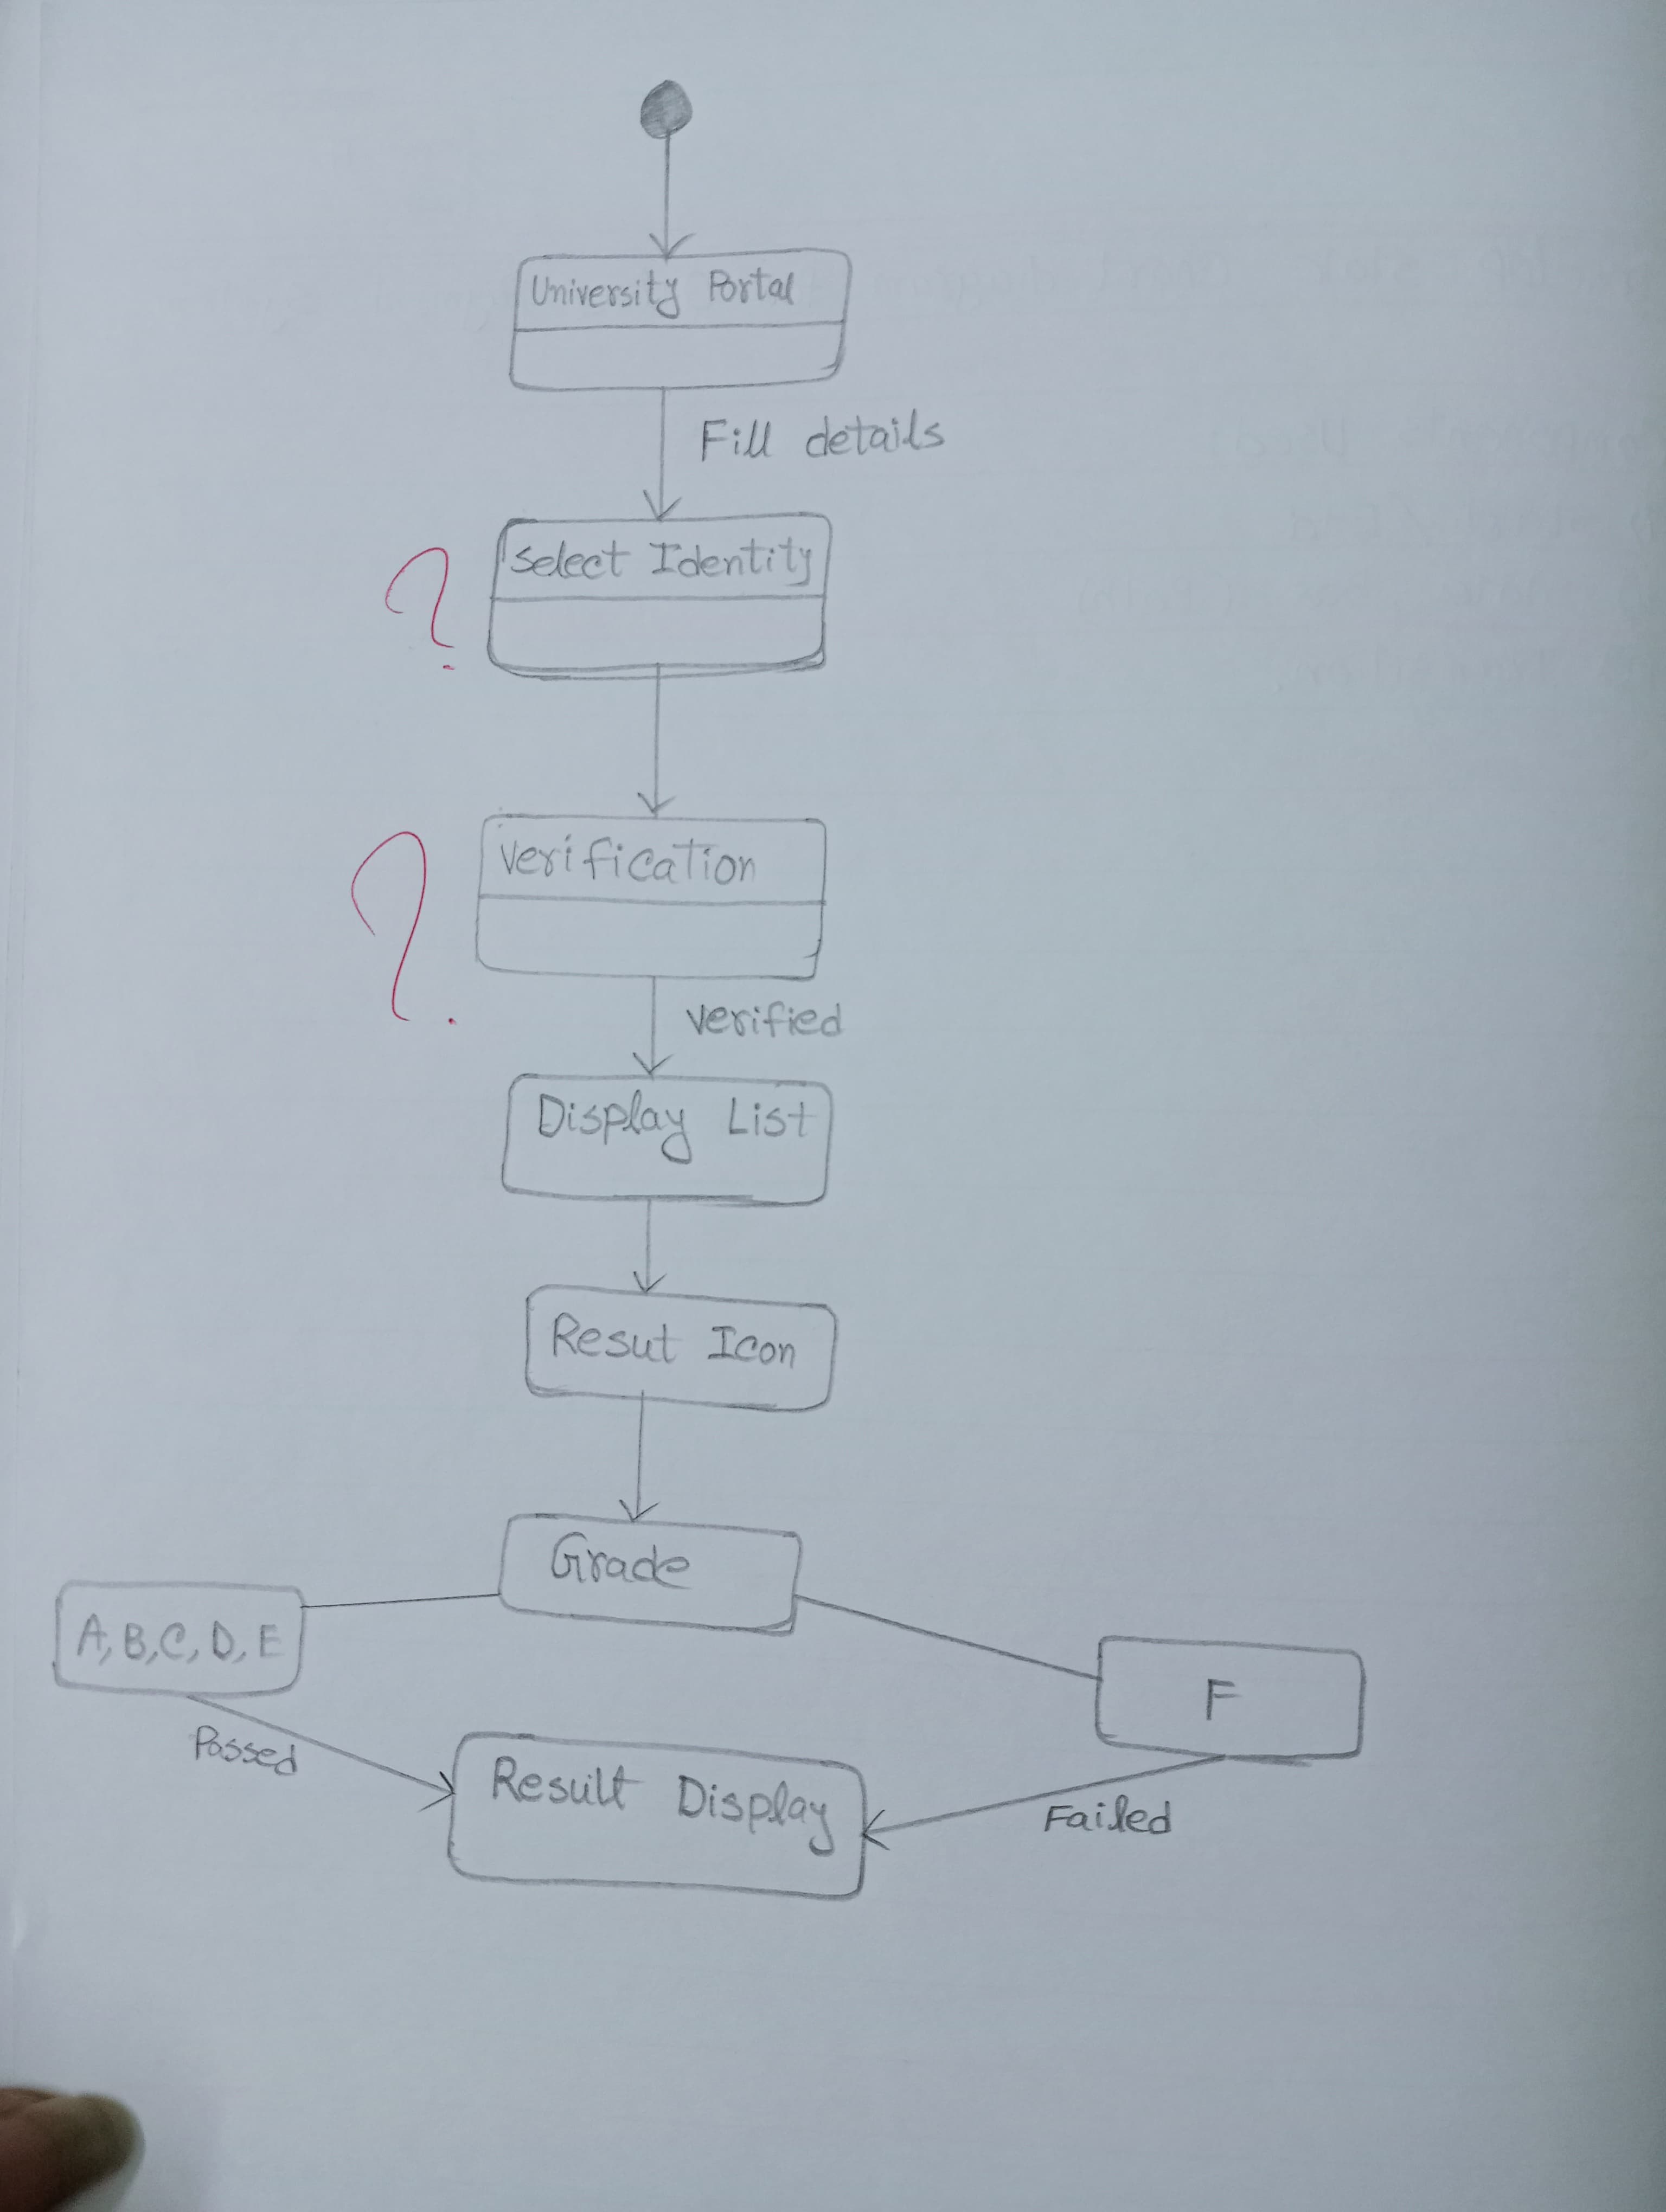 University Portal
Fill details
Select Identity
?
Verification
?
verified
Display List
Resut Icon
Grade
A, B, C, D, E
F
Passed
Result Display
Failed